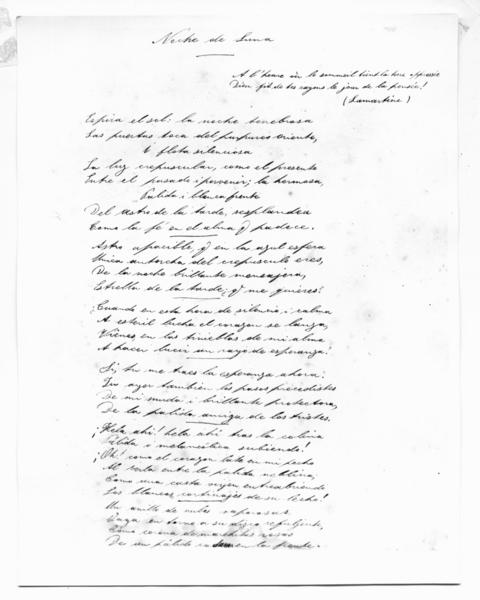 Noche de Luna
A l'heure où le sommeil tient la terre oppressée
Dieu fit de tes rayons le jour de la pensée!
(Lamartine)
Espira el sol: la noche tenebrosa
Las puertas toca del purpureo oriente,
I flota silenciosa
La luz crepuscular, como el presente
Entre el pasado i porvenir; la hermosa,
Palida i blanca frente
Del astro de la tarde, resplandece
Como la fé en el alma q padece.
Astro apacible, q en la azul esfera
Unica antorcha del crepusculo eres,
De la noche brillante mensajera,
Estrella de la tarde; q me quieres?
¿Cuando en esta hora de silencio, i calma
A esteril lucha el corazon se lanza,
Vienes en las tinieblas de mi alma
A hacer lucir un rayo de esperanza?
Si, tu me traes la esperanza ahora:
Tu ayer tambien los pasos precedistes
De mi muda i brillante protectora,
De la palida amiga de los tristes.
¡Hela ahi! hela ahi tras la colina
Palida i melancolica subiendo!
¡Oh! como el corazon late en mi pecho
Al verla entre la palida neblina,
Como una casta virjen entreabriendo
Las blancas cortinajes de su lecho!
Un anillo de nubes vaporosas
Vaga en torno a su disco refuljente,
Como corona de marchitas rosas
De un pálido en la frente.